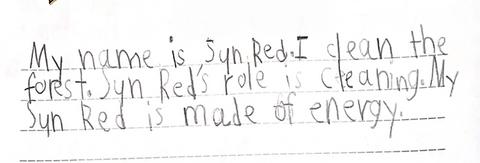 My name is Syn Red. I clean the
forest. Syn Red's role is cleaning. My
Syn Red is made of energy.